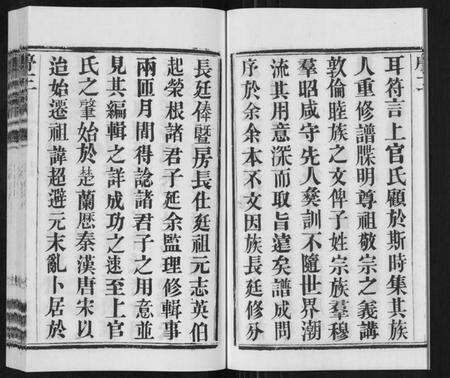 耳符言上官氏顧於斯時集其族
人重修譜牒明尊祖敬宗之義講
敦倫睦族之文俾子姓宗族羣穆
羣昭咸守先人彝訓不隨世界潮
流其用意深而取旨遠矣譜成問
序於余余本不文因族長廷修分
長廷俸暨房長仕廷祖元志英伯
起榮根諸君子延余監理修輯事
兩匝月間得諗諸君子之用意並
見其編輯之詳成功之速至上官
氏之肇始於楚蘭歷秦漢唐宋以
迨始遷祖諱超避元末亂卜居於